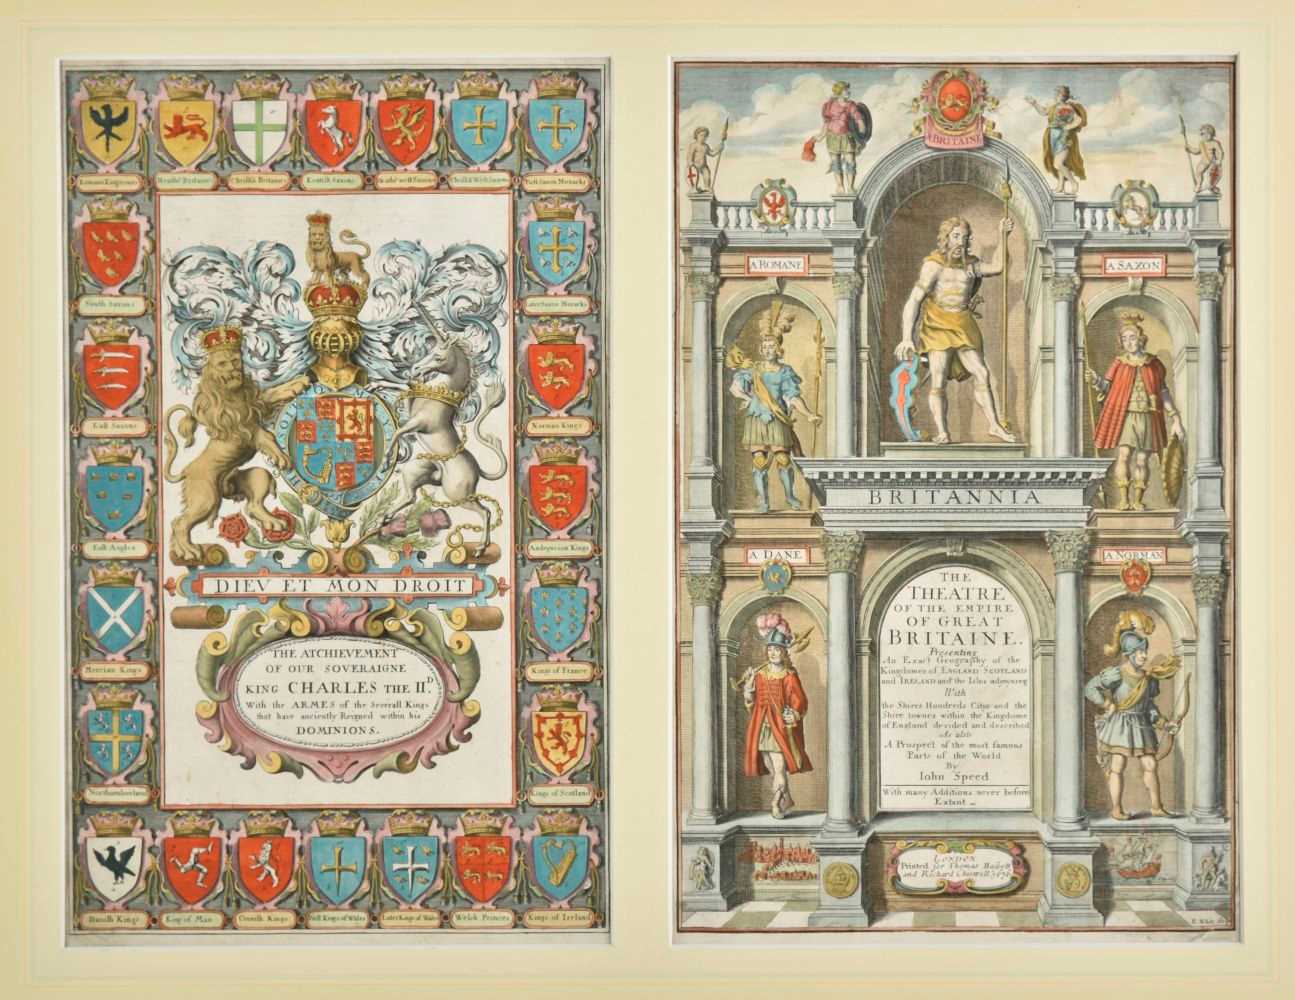 Romano Kings
Christ<sup>n</sup> Britaines
Kentish Saxons
First Saxon Monarks
South Saxons
Later Saxon Monarks
East Saxons
Norman Kings
East Angles
Andegavian Kings
Mercian Kings
Kings of France
Northumberland
Kings of Scotland
DIEV ET MON DROIT
THE ATCHIEVEMENT
OF OUR SOVERAIGNE
KING CHARLES THE II.D
With the ARMES of the Severall Kings
that have anciently Reigned within his
DOMINIONS.
Danish Kings
King of Man
Cornish Kings
First Kings of Wales
Later Kings of Wales
Welch Princes
Kings of Ireland
A BRITAINE
A ROMANE
A SAXON
BRITANNIA
A DANE
A NORMAN
THE
THEATRE
OF THE EMPIRE
OF GREAT
BRITAINE.
Presenting
An Exact Geography of the
Kingdomes of ENGLAND SCOTLAND
and IRELAND and the Isles adioyning
With
the Shires Hundreds Citys and the
Shire townes within the Kingdome
of England devided and described
As also
A Prospect of the most famous
Parts of the World
By
Iohn Speed
With many Additions never before
Extant
LONDON
Printed for Thomas Bassett
and Richard Chiswell 1676